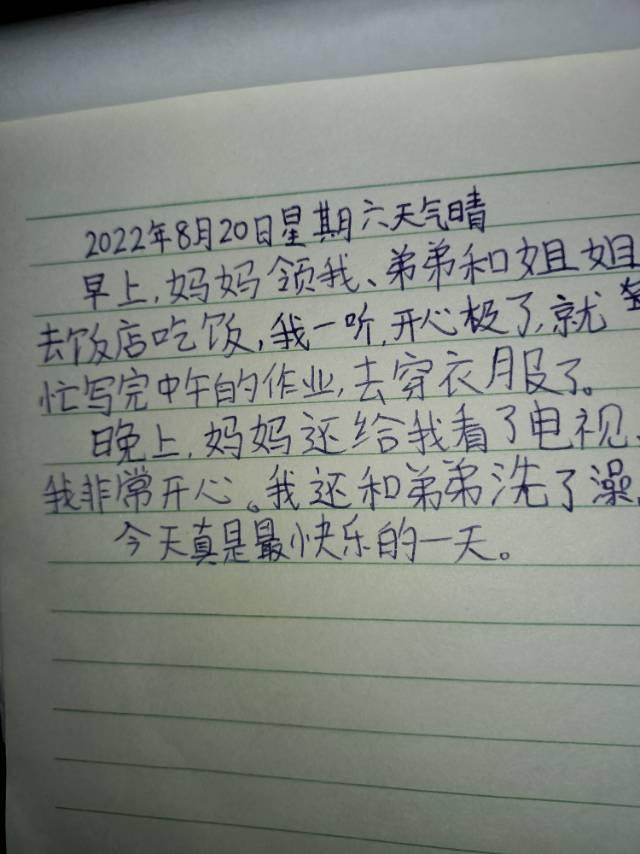 2022年8月20日星期六天气晴
早上,妈妈领我、弟弟和姐姐
去饭店吃饭,我一听,开心极了,就
忙写完中午的作业,去穿衣服了。
晚上,妈妈还给我看了电视,
我非常开心。我还和弟弟洗了澡,
今天真是最快乐的一天。